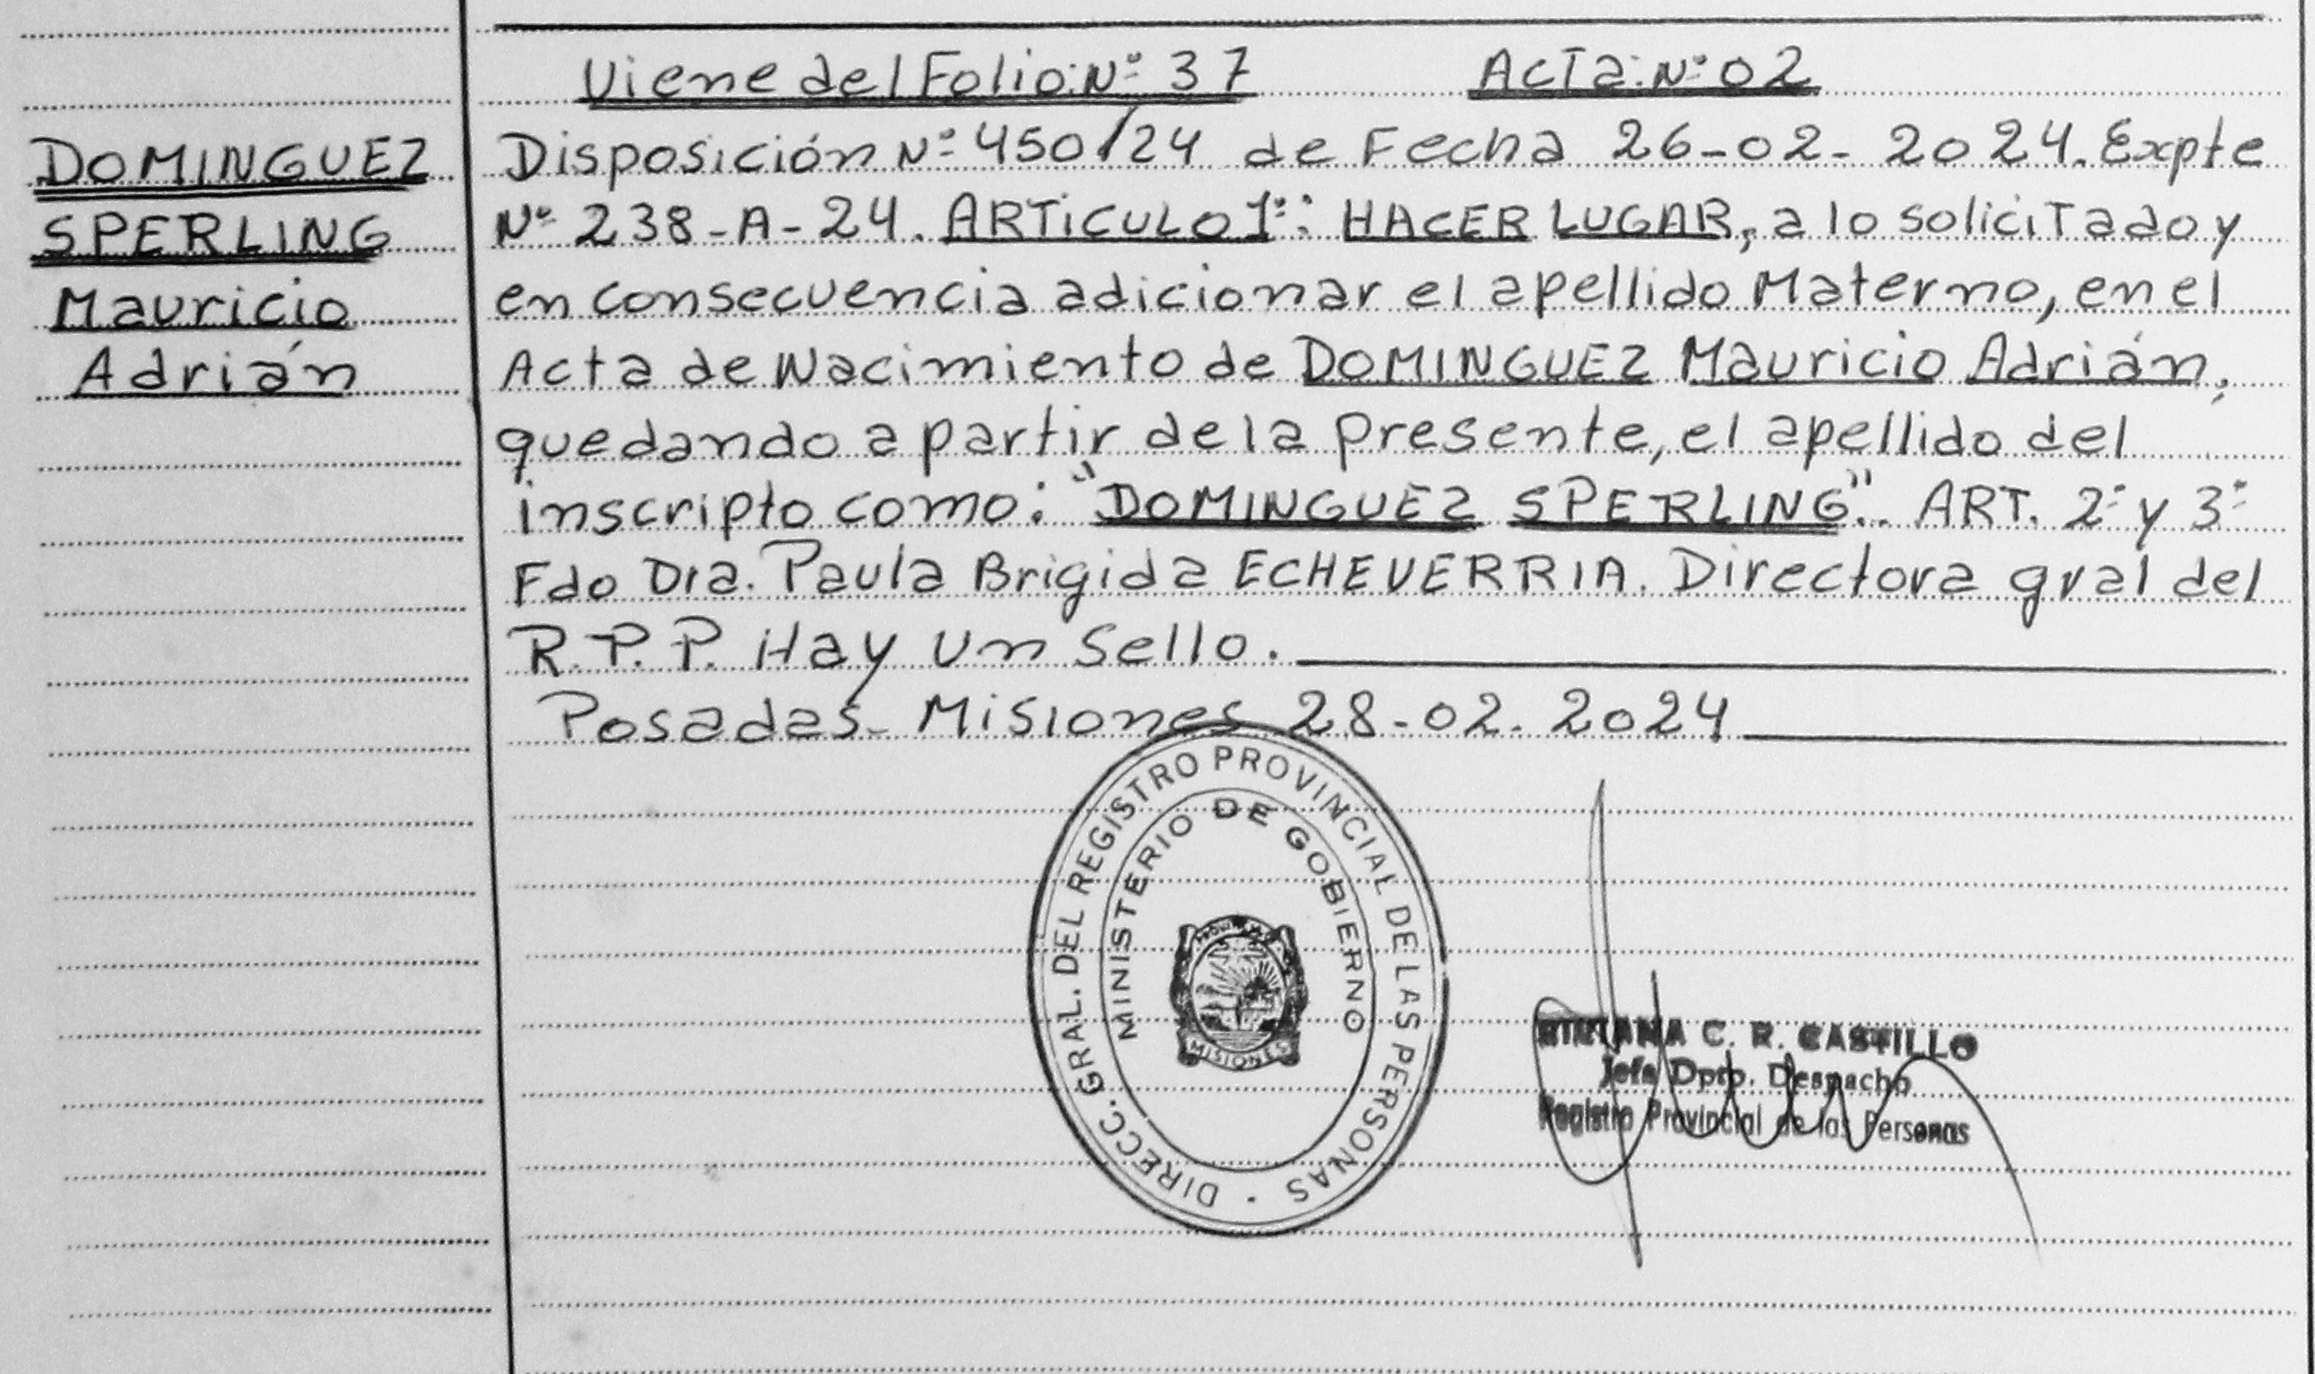 Viene del Folio: Nº 37 Acta: Nº 02
DOMINGUEZ
SPERLING
Mauricio
Adrián
Disposición Nº 450/24 de Fecha 26-02-2024. Expte
Nº 238-A-24. ARTiCULO 1º: HACER LUGAR, a lo solicitado y
en consecuencia adicionar el apellido Materno, en el
Acta de Nacimiento de DOMINGUEZ Mauricio Adrián,
quedando a partir de la presente, el apellido del
inscripto como: "DOMINGUEZ SPERLING". ART. 2º y 3º
Fdo Dra. Paula Brigida ECHEVERRIA. Directora gral del
R.P.P. Hay un Sello.
Posadas- Misiones 28-02-2024
DIRECC. GRAL. DEL REGISTRO PROVINCIAL DE LAS PERSONAS
MINISTERIO DE GOBIERNO
MISIONES
C. R. CASTILLO
Jefa Dpto. Despacho
Registro Provincial de las Personas